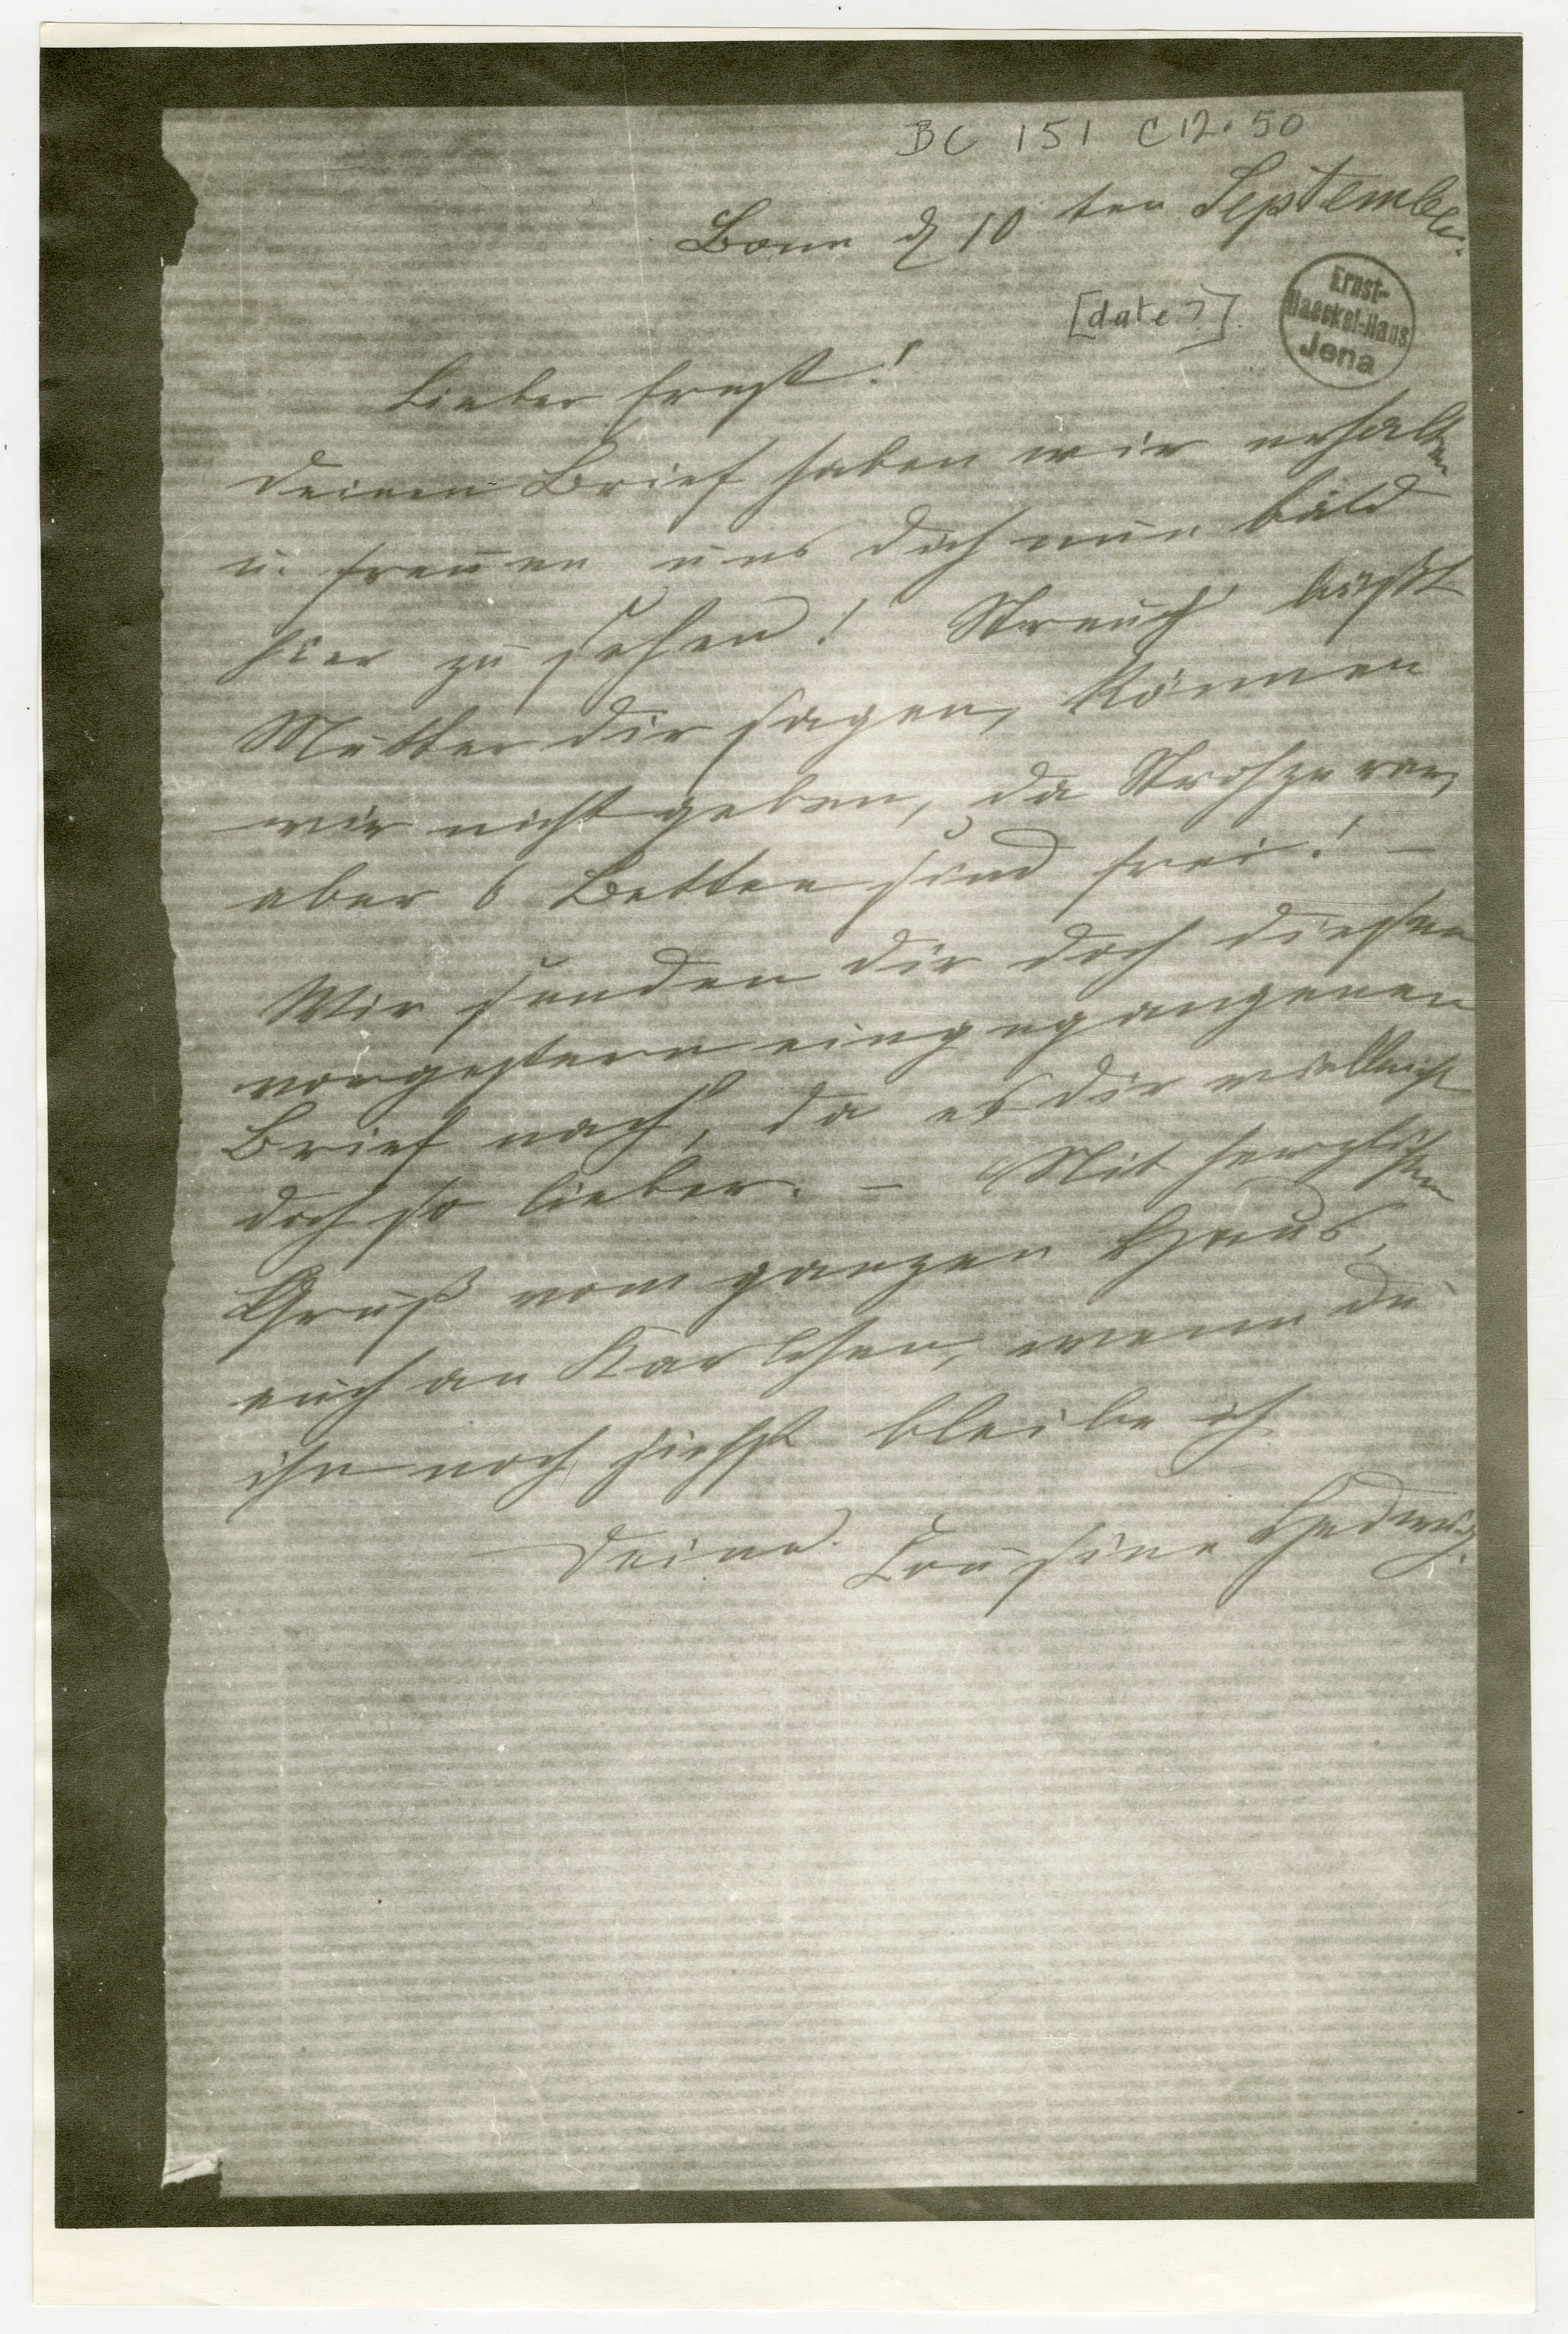 BC 151 C12.50
Bonn d 10 ten September.
[date?]
Ernst-
Haeckel-Haus
Jena
Lieber Ernst!
Deinen Brief haben wir erhalten
u. freuen uns dich nun bald
hier zu sehen! Streuch läßt
Mutter dir sagen, können
wir nicht geben, da Stroh zu rar,
aber 6 Betten sind frei! –
Wir senden dir doch diesen
vorgestern eingegangenen
Brief nach, da es dir vielleicht
doch so lieber. – Mit herzlichsten
Gruß vom ganzen Haus,
auch an Karlchen, wenn du
ihn noch siehst bleibe ich
Deine Cousine Hedwig.